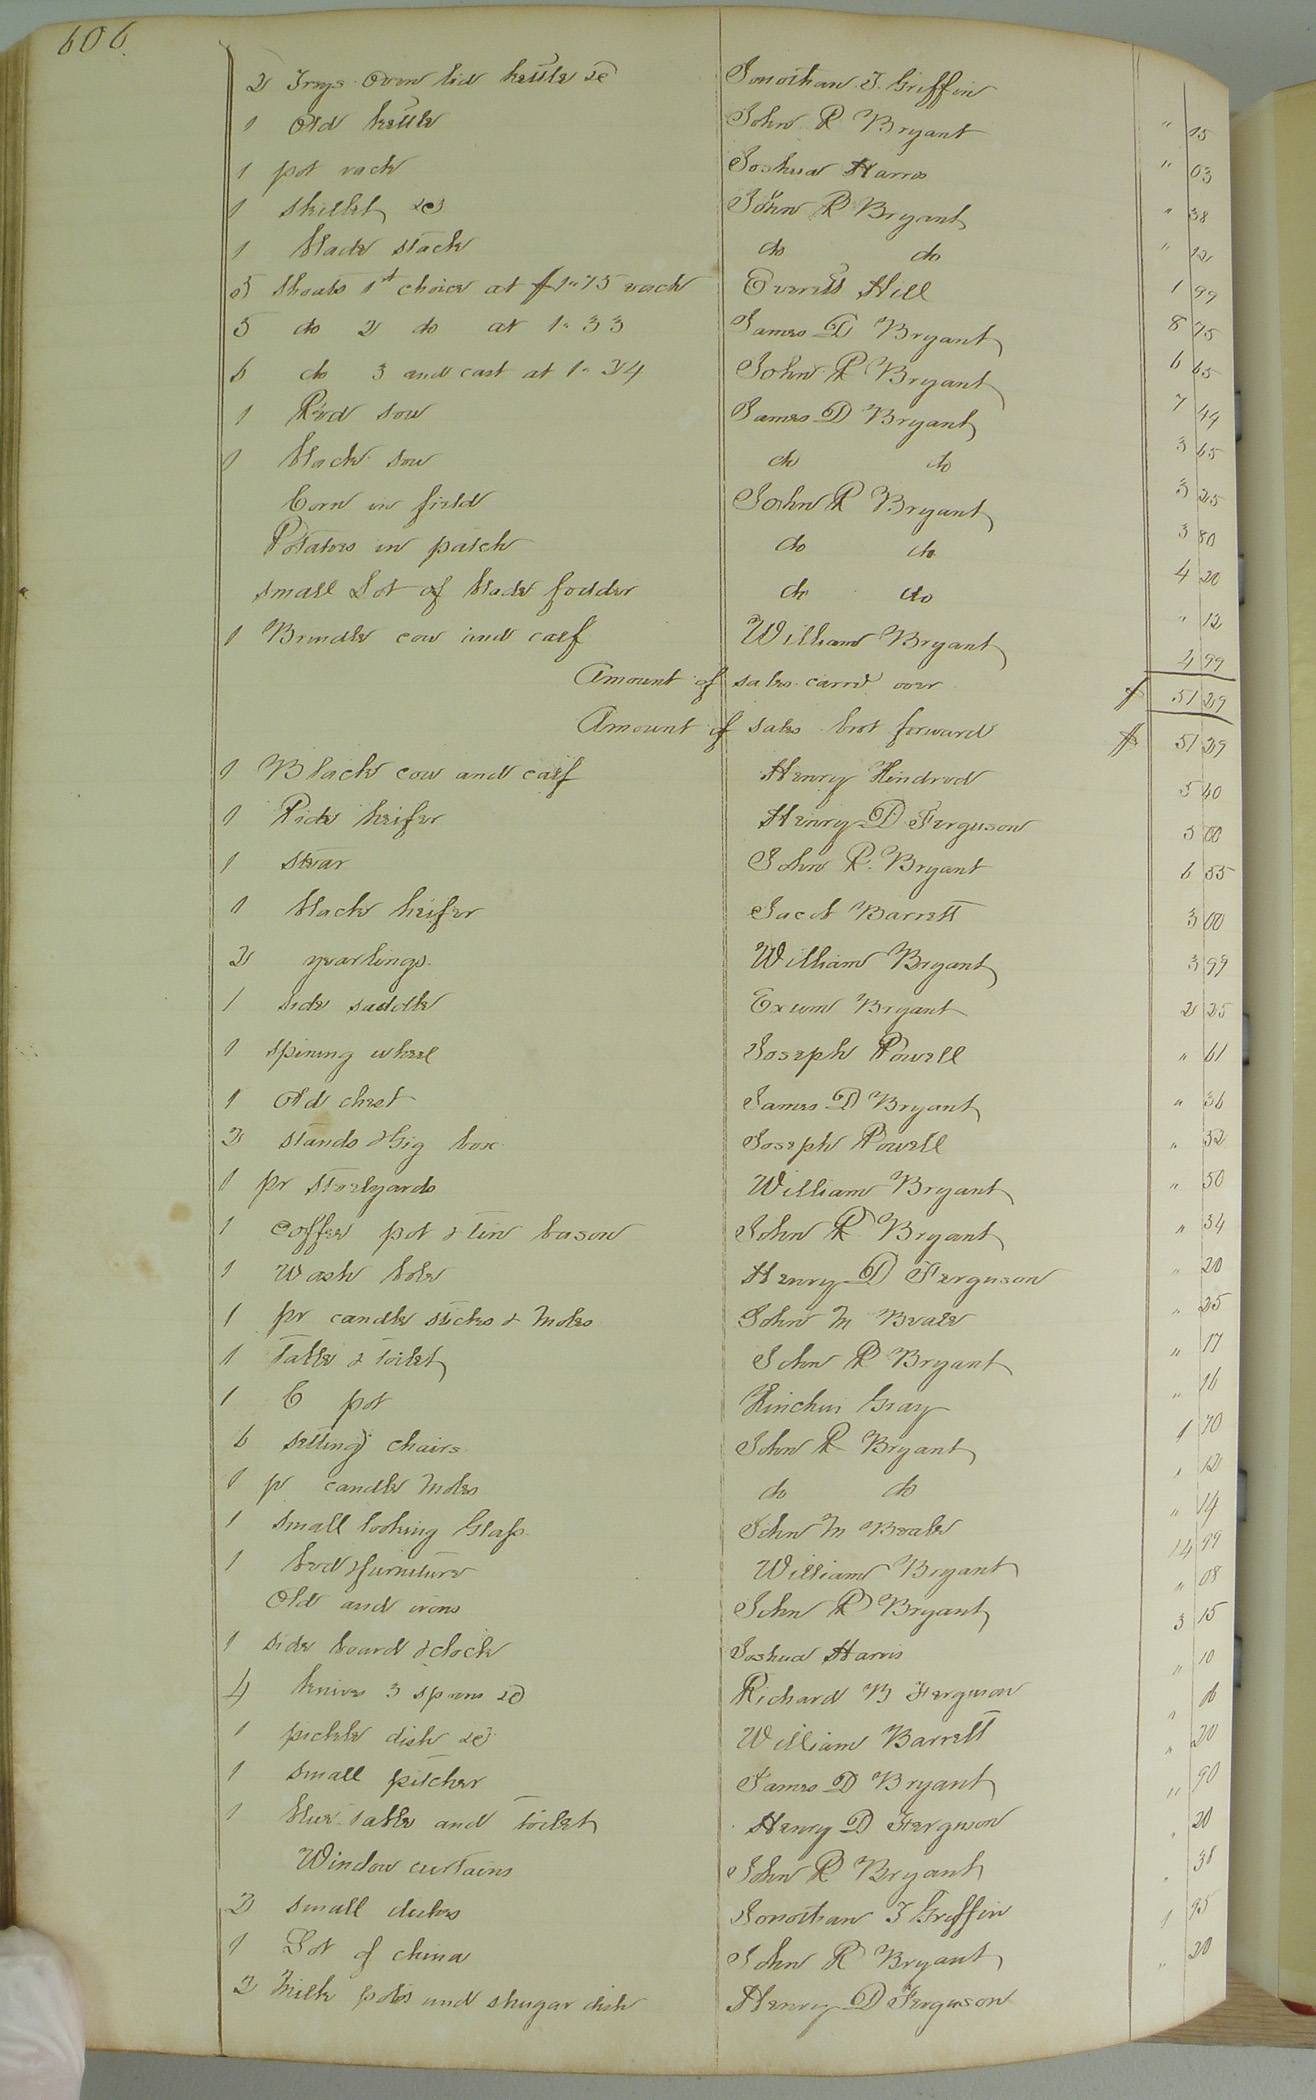 606.
2 Trays Oven lid kettle &c Jonathan T. Griffin " 15
1 Old kettle John R Bryant " 03
1 pot rack Joshua Harris " 38
1 skillet &c John R Bryant " 12
1 blade stack do do 1 99
5 Shoats 1st choice at $1"75 each Everitt Hill 8 75
5 do 2 do at 1"33 James D Bryant 6 65
6 do 3 and cast at 1"24 John R Bryant 7 44
1 Red sow James D Bryant 3 65
1 black sow do do 3 25
Corn in field John R Bryant 3 80
Potatoes in patch do do 4 20
small Lot of blade fodder do do " 12
1 Brindle cow and calf William Bryant 4 99
Amount of sales carrd over $ 51 29
Amount of sales brot forward $ 51 29
1 Black cow and calf Henry Kindred 5 40
1 Pide heifer Henry D Ferguson 5 00
1 stear John R. Bryant 6 55
1 black heifer Jacob Barrett 3 00
2 yearlings William Bryant 3 99
1 side saddle Exum Bryant 2 25
1 spining wheel Joseph Powell " 61
1 Old chest James D Bryant " 36
2 stands & big box Joseph Powell " 52
1 pr steelyards William Bryant " 50
1 coffee pot & tin bason John R Bryant " 34
1 Wash bole Henry D Ferguson " 20
1 pr candle sticks & moles John M Beale " 25
1 Table & toilet John R Bryant " 17
1 C pot Kinchin Gray " 16
6 setting chairs John R Bryant 1 70
1 pr candle moles do do " 12
1 small looking Glass John M Beale " 14
1 bed & furniture William Bryant 14 99
Old and irons John R Bryant " 08
1 side board & clock Joshua Harris 3 15
4 knives 3 spoons &c Richard B Ferguson " 10
1 pickle dish &c William Barrett " 06
1 small pitcher James D Bryant " 20
1 blue table and toilet Henry D Ferguson " 90
Window curtains John R Bryant " 20
2 small Jonathan T Griffin " 38
1 Lot of china John R Bryant 1 95
2 Milk pots and shugar dish Henry D Ferguson " 20